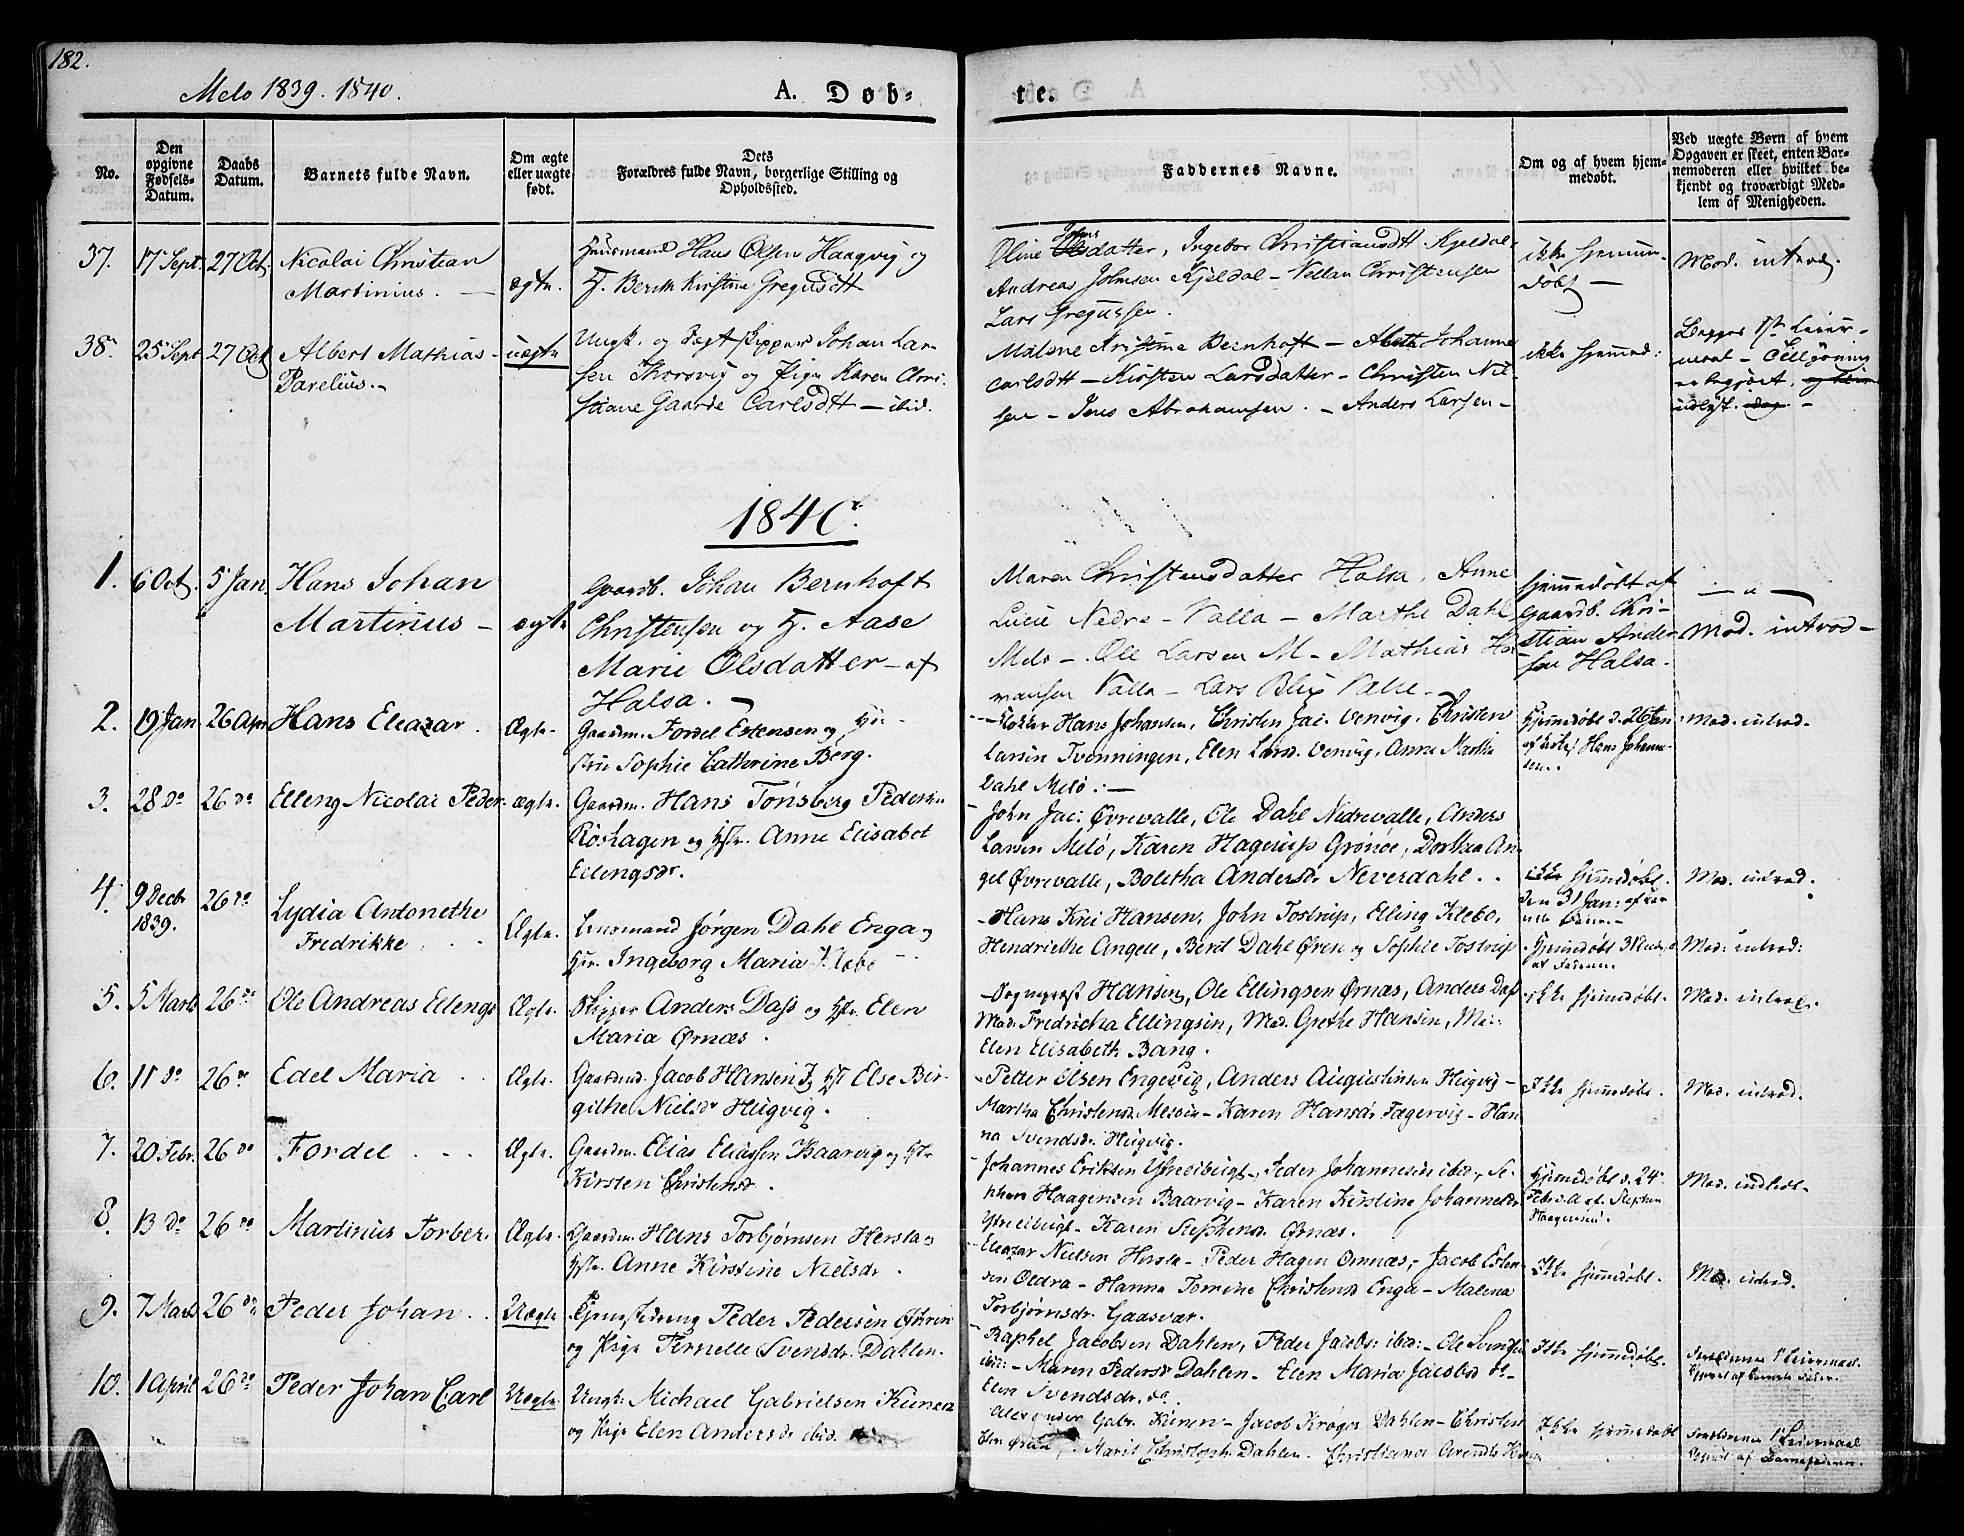 182.
Melø 1839. 1840.
A. Døb-
te.
No.
Den opgivne Fødsels-Datum.
Daabs Datum.
Barnets fulde Navn.
Om ægte eller uægte født.
Dets Forældres fulde Navn, borgerlige Stilling og Opholdssted.
Faddernes Navne.
Om og af hvem hjem-medøbt.
Ved uægte Børn af hvem Opgaven er skeet, enten Bar-nemoderen eller hvilket be-kjendt og troværdigt Med-lem af Menigheden.
37.
17 Sept.
27 Oct.
Nicolai Christian
Martinius.
ægte.
Huusmand Hans Olsen Haagvig og
H. Berith Kirstine Gregusdtt
Oline Johnsdatter, Ingebor Christiansdtt Kjeldal-
Andreas Johnsen Kjeldal - Nellan Christensen
Lars Gregussen.
ikke hjemme-
døbt
Mod. introd.
38.
25 Sept
27 Oct
Albert Mathias
Parelius.
uægte
Ungk. og Jægtskipper Johan Lar-
sen Thorsvig og Pige Karen Chri-
stiane Gaarde Carlsdtt - ibid.
Malene Kristine Bernhoft - Johanne
Carlsdtt - Kirsten Larsdatter - Christen Niel-
sen - Jens Abrahamsen. - Anders Larsen -
ikke hjemmed:
Begges 1ste Leier-
maal -
1840.
1.
6 Oct.
5 Jan
Hans Johan
Martinus -
ægte
Gaardb. Johan Bernhoft
Christensen og H. Aase
Marie Olsdatter - af
Halsa.
Maren Christensdatter Halsa, Anne
Lucie Nedre-Valla - Marthe Dahl
Melø - Ole Larsen M - Mathias Ho-
vansen Valla - Lars Blix Valle -
hjemmedøbt af
Gaardb. Chri-
stian Ander
sen Halsa.
Mod. introd -
2.
19 Jan
26 Apr
Hans Eleazar.
Ægte.
Gaardm. Fordel Estensen og Hu-
stru Sophie Cathrine Berg.
Klokker Hans Johansen, Christen Jac. Venvig, Christen
Larsen Tvenningen, Elen Larsd. Venvig, Anne Martha
Dahl Melø.
Hjemmedøbt d. 26 Jan
Hans Johan-
sen.
Mod. introd.
3.
28 do
26 do
Elleng Nicolai Peder
ægte.
Gaardm. Hans Tønsberg Pedersen
Røshagen og Hstr. Anne Elisabet
Ellengsdr.
John Jac: Øvrevalle, Ole Dahl Nedrevalle, Anders
Larsen Melø, Karen Hagerups Grønøe, Dorthea An-
gel Øvrevalle, Boletha Andersdr Neverdahl.
ikke hjemmedøbt.
Mod. introd.
4.
9 Decb
1839.
26 do
Lydia Antonethe
Fredrikke
Ægte.
Lensmand Jørgen Dahl Enga og
Hstr. Ingeborg Maria Klæbo
Hans Knü Hansen, John Tostrup, Elling Klebo,
Hendriethe Angell, Berit Dahl Øren og Sophie Tostrup
Mod: introd:
5.
5 Marts
26 do
Ole Andreas Ellengs
Ægte.
Skipper Anders Dass og Hstr. Elen
Maria Ørnæs.
Sognepræst Hansen, Ole Ellingsen Ørnæs, Anders Dass
Mad. Fredricha Ellingsen, Mad. Grethe Hansen, M:
Elen Elisabeth Bang.
ikke hjemmdøbt.
Mod. introd.
6.
11 do
26 do
Edel Maria
Ægte.
Gaardmd. Jacob Hansen og Hst Else Bir-
githe Nielsdr Hugvig.
Petter Olsen Engevig, Anders Augustinsen Hugvig -
Martha Christensd Mesøen - Karen Hansdr Fagervig - Han-
na Svendsdr. Hugvig.
Ikke hjemmedøbt.
Mod. introd.
7.
20 Febr.
26 do
Fordel
Ægte.
Gaardm. Elias Eliassen Baarvig og Hstr
Kirsten Christensd.
Johannes Eriksen Ytreibugt, Peder Johannesen ibid, Ste-
phen Haagensen Baarvig - Karen Kirstine Johannesdr
Ytreibugt - Karen Stephensd. Ørnæs.
Hjemmedøbt d. 24
Febr. d. A. af Stephen
Haagensen.
8.
13 do
26 do
Martinus Torber.
Ægte.
Gaardm. Hans Torbjørnsen Hersta og
Hstr. Anne Kirstine Nielsdr.
Eleazar Nielsen Hersta - Peder Hagen Ørnæs, Jacob Esten-
sen Oldra - Hanna Tomine Christensd Enga - Malena
Torbjørnsdr. Gaasvær.
Ikke hjemmdøbt.
Mod. introd.
9.
7 Marts
26 do
Peder Johan
Uægte
Peder Pedersen Øhren
og Pige Pernelle Svendsdr. Dahlen.
Raphel Jacobsen Dahlen, Peder Jacobs: ibid: - Ole Svendsen
ibid: - Maren Pedersdr Dahlen - Elen Maria Jacobsd do -
Elen Svendsdr. do.
Ikke hjemmdøbt.
Forældrenes 1ste Leiermaal.
10.
1 April
26 do
Peder Johan Carl
Uægte.
Ungk: Michael Gabrielsen Kunen
og Pige Elen Andersdr ibid.
Alexander Gabr. Kunen - Jacob Krøger Dahlen - Christen
Øren, Marit Christophs Dahlen. Christiane Arendts
Ikke hjemmedøbt
Forældrenes 1ste Leiermaal
af Barnefaderen.